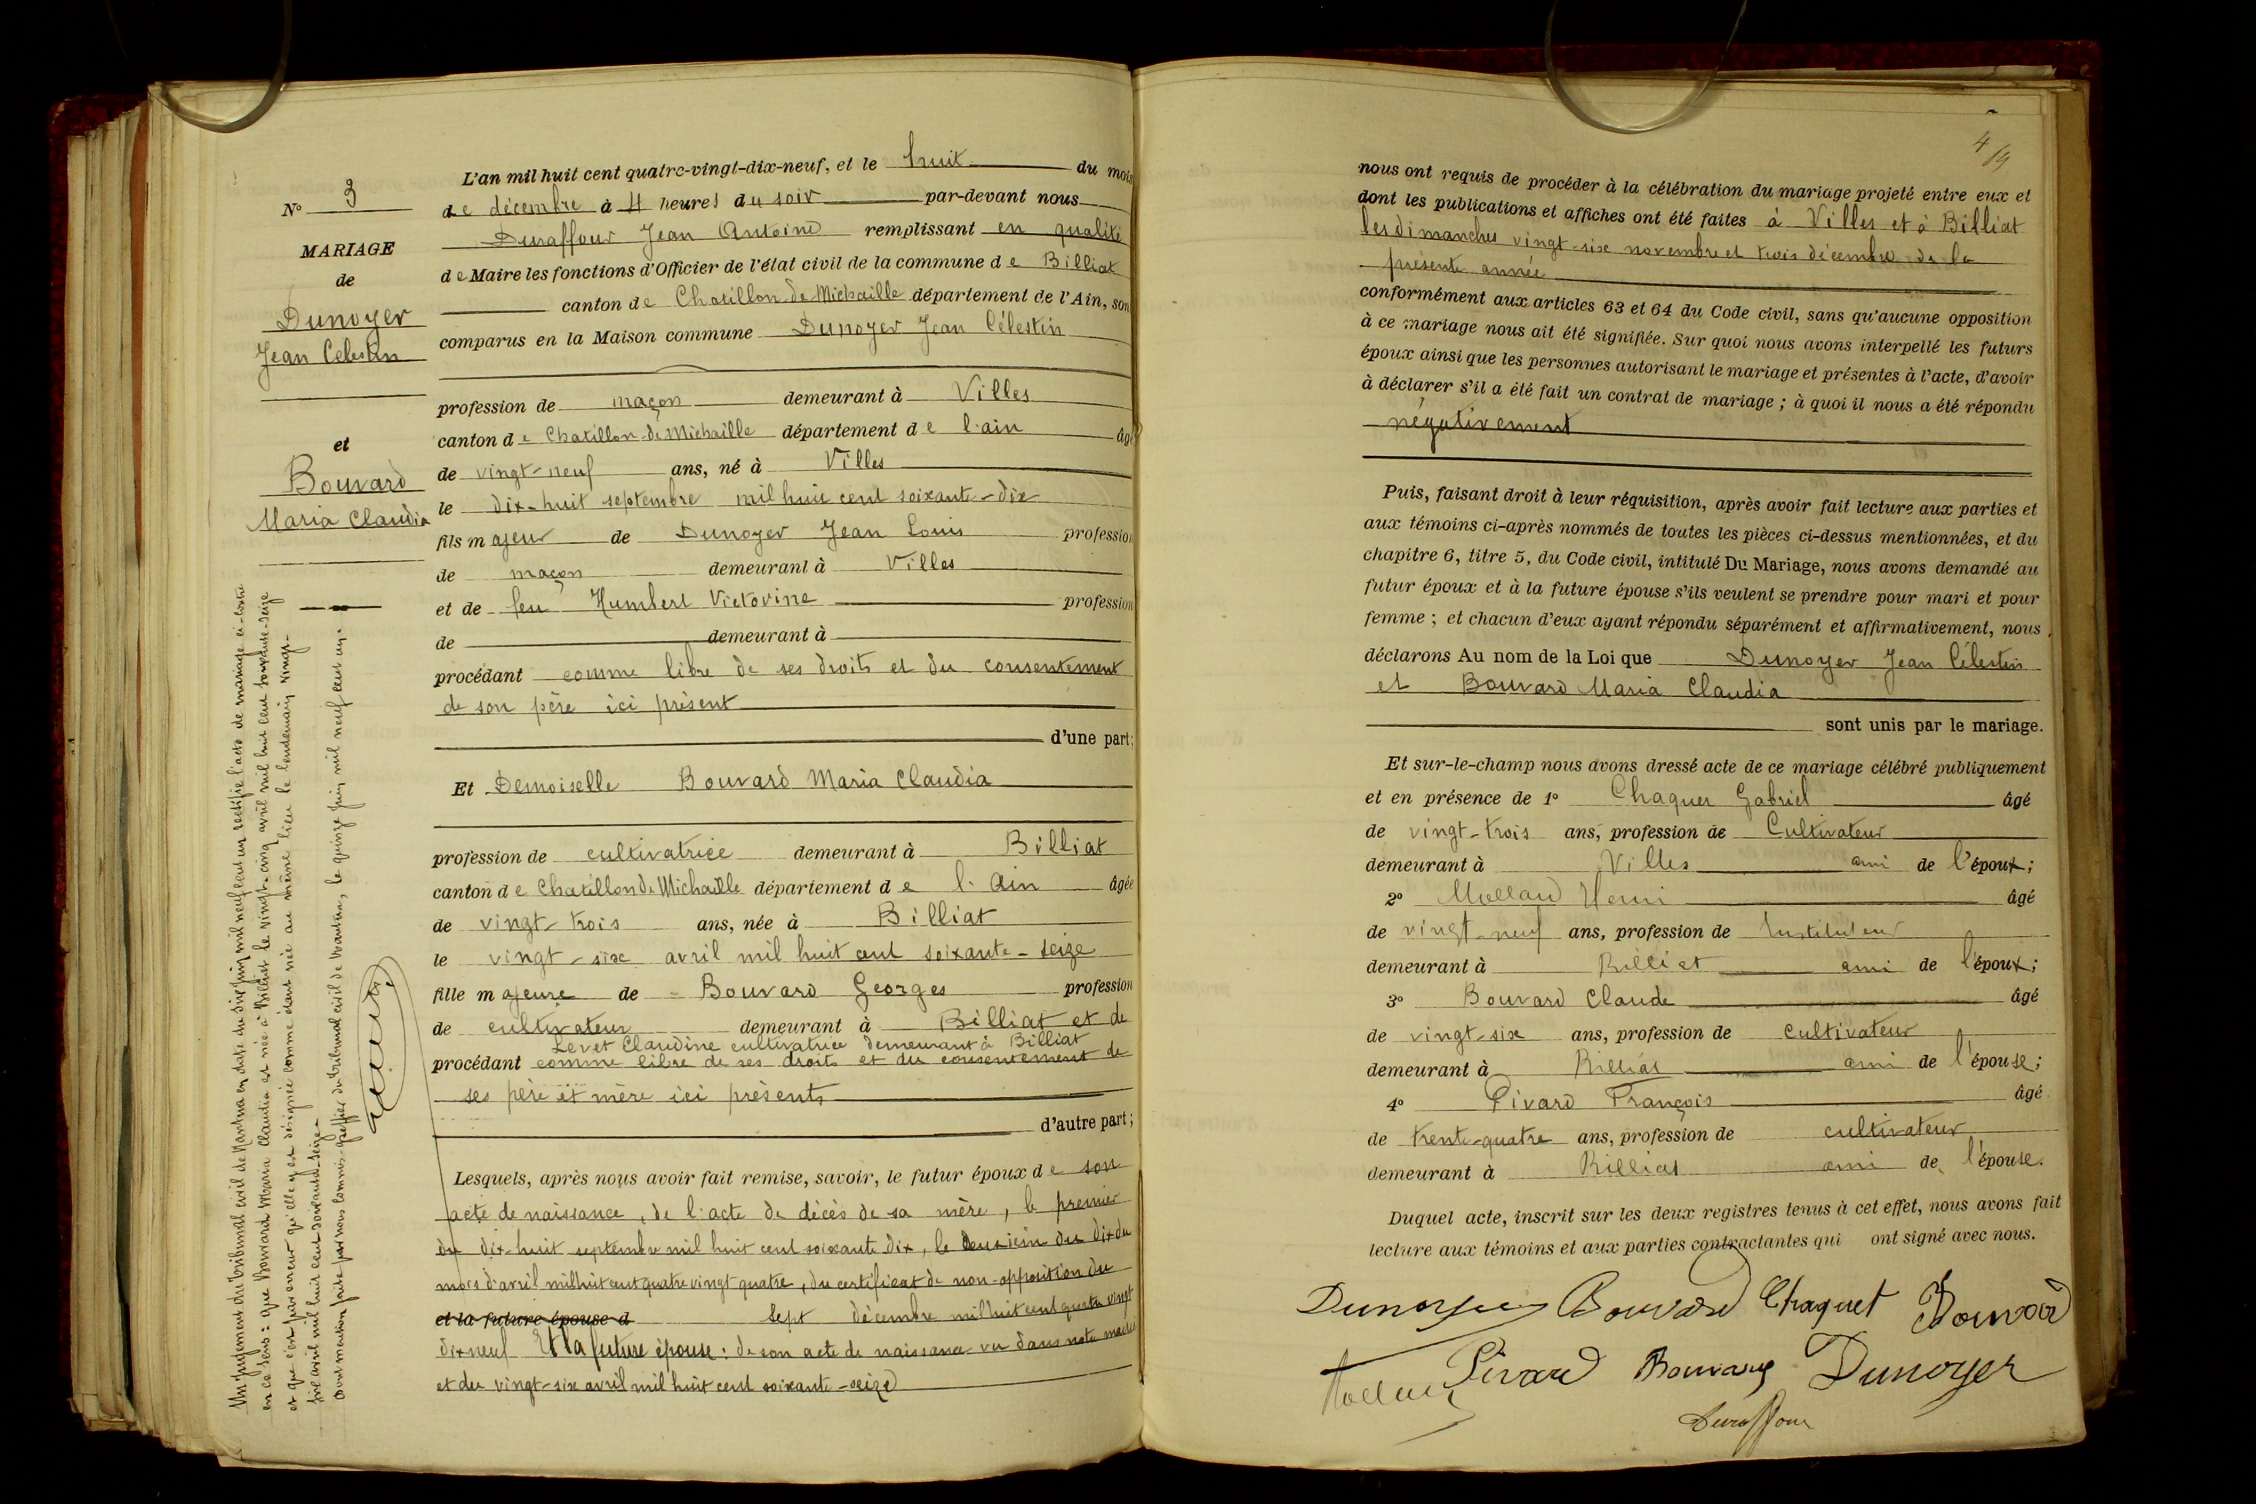 N° 3
MARIAGE
de
Dunoyer
Jean Celestin
et
Bouvard
Maria Claudia
Un jugement du tribunal civil de Nantua en date du six juin mil neuf cent un rectifie l'acte de mariage ci-contre
en ce sens: que Bouvard Maria Claudia est née à Billiat le vingt-cinq avril mil huit cent soixante-seize
et que c'est par erreur qu'elle y est désignée comme étant née au même lieu le lendemain vingt-
six avril mil huit cent soixante-seize.
Dont mention faite par nous commis-greffier du tribunal civil de Nantua, le quinze juin mil neuf cent un.
L'an mil huit cent quatre-vingt-dix-neuf, et le huit du mois
de décembre à 4 heures du soir par-devant nous
Duraffour Jean Antoine remplissant en qualité
de Maire les fonctions d'Officier de l'état civil de la commune de Billiat
canton de Chatillon de Michaille département de l'Ain, son
comparus en la Maison commune Dunoyer Jean Célestin
profession de maçon demeurant à Villes
canton de Chatillon de Michaille département de l'ain âgé
de vingt-neuf ans, né à Villes
le dix-huit septembre mil huit cent soixante-dix
fils majeur de Dunoyer Jean Louis profession
de maçon demeurant à Villes
et de feu Humbert Victorine profession
de demeurant à
procédant comme libre de ses droits et du consentement
de son père ici présent
d'une part;
Et Demoiselle Bouvard Maria Claudia
profession de cultivatrice demeurant à Billiat
canton de Chatillon de Michaille département de l'Ain âgée
de vingt-trois ans, née à Billiat
le vingt-six avril mil huit cent soixante-seize
fille majeure de Bouvard Georges profession
de cultivateur demeurant à Billiat et de
Levet Claudine cultivatrice demeurant à Billiat
procédant comme libre de ses droits et du consentement de
ses père et mère ici présents
d'autre part;
Lesquels, après nous avoir fait remise, savoir, le futur époux de son
acte de naissance, de l'acte de décès de sa mère, le premier
du dix-huit septembre mil huit cent soixante dix, le deuxième du dix du
mois d'avril mil huit cent quatre vingt quatre, du certificat de non-opposition du
et la future épouse d sept décembre mil huit cent quatre vingt
dix neuf Et la future épouse: de son acte de naissance vu dans notre mairie
et du vingt-six avril mil huit cent soixante-seize
4/19
nous ont requis de procéder à la célébration du mariage projeté entre eux et
dont les publications et affiches ont été faites à Villes et à Billiat
les dimanches vingt-six novembre et trois décembre de la
présente année
conformément aux articles 63 et 64 du Code civil, sans qu'aucune opposition
à ce mariage nous ait été signifiée. Sur quoi nous avons interpellé les futurs
époux ainsi que les personnes autorisant le mariage et présentes à l'acte, d'avoir
à déclarer s'il a été fait un contrat de mariage; à quoi il nous a été répondu
négativement
Puis, faisant droit à leur réquisition, après avoir fait lecture aux parties et
aux témoins ci-après nommés de toutes les pièces ci-dessus mentionnées, et du
chapitre 6, titre 5, du Code civil, intitulé Du Mariage, nous avons demandé au
futur époux et à la future épouse s'ils veulent se prendre pour mari et pour
femme; et chacun d'eux ayant répondu séparément et affirmativement, nous
déclarons Au nom de la Loi que Dunoyer Jean Célestin
et Bouvard Maria Claudia
sont unis par le mariage.
Et sur-le-champ nous avons dressé acte de ce mariage célébré publiquement
et en présence de 1° Chaquet Gabriel âgé
de vingt-trois ans, profession de Cultivateur
demeurant à Villes ami de l'époux;
2° Mollard Henri âgé
de vingt-neuf ans, profession de Instituteur
demeurant à Billiat ami de l'époux;
3° Bouvard Claude âgé
de vingt-six ans, profession de cultivateur
demeurant à Billiat ami de l'épouse;
4° Pivard François âgé
de trente-quatre ans, profession de cultivateur
demeurant à Billiat ami de l'épouse.
Duquel acte, inscrit sur les deux registres tenus à cet effet, nous avons fait
lecture aux témoins et aux parties contractantes qui ont signé avec nous.
Dunoyer Bouvard Chaquet Bouvard
Mollard Pivard Bouvard Dunoyer
Duraffour